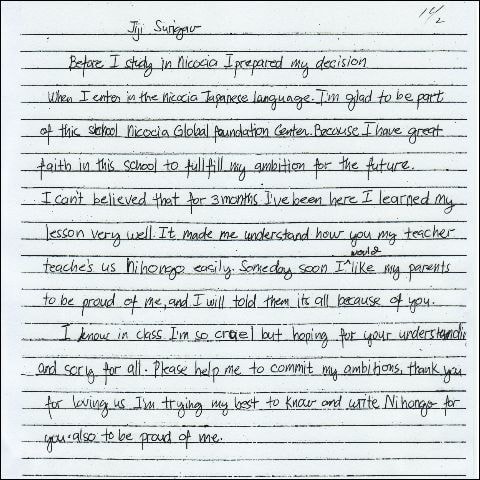 Jiji Surigao
Before I study in Nicocia I prepared my decision
When I enter in the nicocia Japanese language. I'm glad to be part
of this school Nicocia Global foundation Center. Because I have great
faith in this school to fullfill my ambition for the future.
I can't believed that for 3 months I've been here I learned my
lesson very well. It made me understand how you my teacher
would
teache's us Nihongo easily. Someday soon I ^ like my parents
to be proud of me, and I will told them its all because of you.
I know in class I'm so cruel but hoping for your understandin
and sorry for all. Please help me to commit my ambitions, thank you
for loving us I'm trying my best to know and write Nihongo for
you. also to be proud of me.